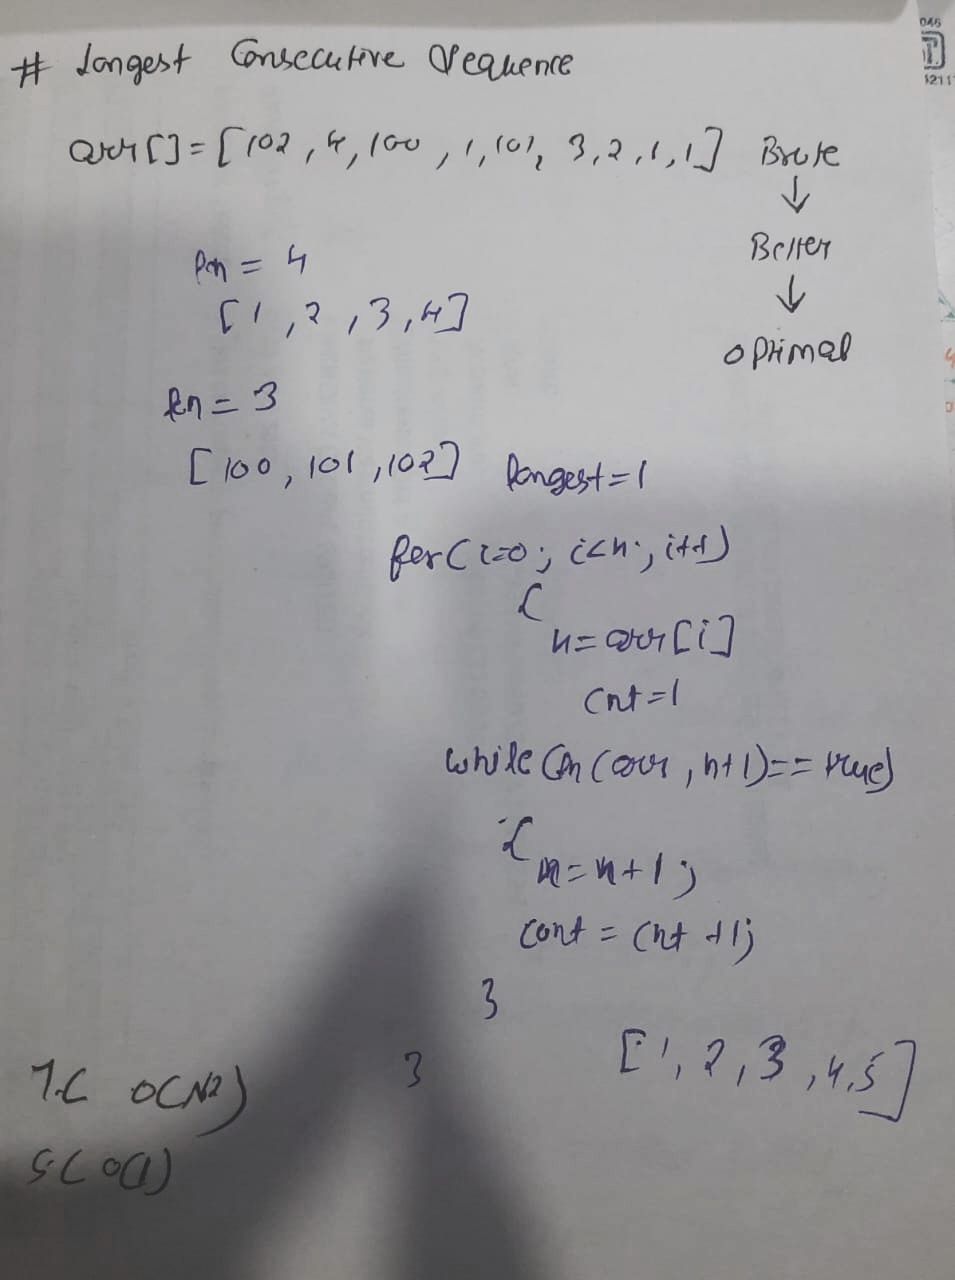 # Longest Consecutive Sequence
arr[] = [102, 4, 100, 1, 101, 3, 2, 1, 1] Brute
↓
Better
↓
optimal
len = 4
[1, 2, 3, 4]
len = 3
[100, 101, 102]
longest = 1
for(i=0; i<n; i++)
{
n = arr[i]
cnt = 1
while(ln(arr, n+1) == true)
{
n = n+1;
cont = cnt +1;
}
}
[1, 2, 3, 4, 5]
T.C O(N2)
S.C O(1)
046
1211